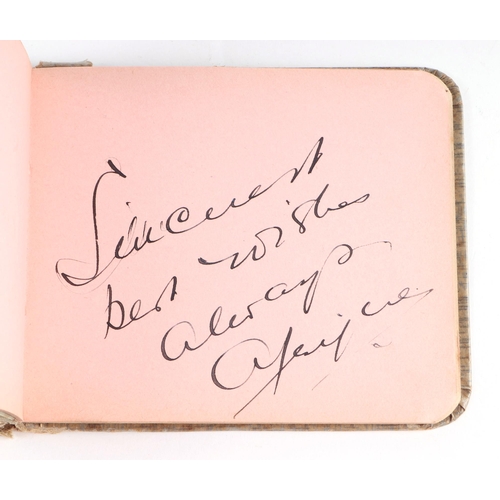 Sincerest
best wishes
always